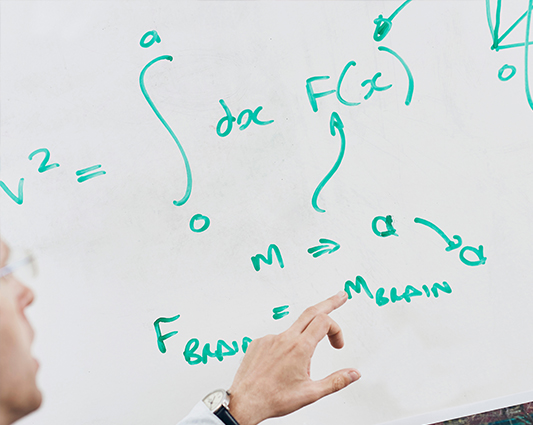 v² = ∫₀ᵃ dx F(x)
O
M ⇒ a → a
F BRAIN = M BRAIN